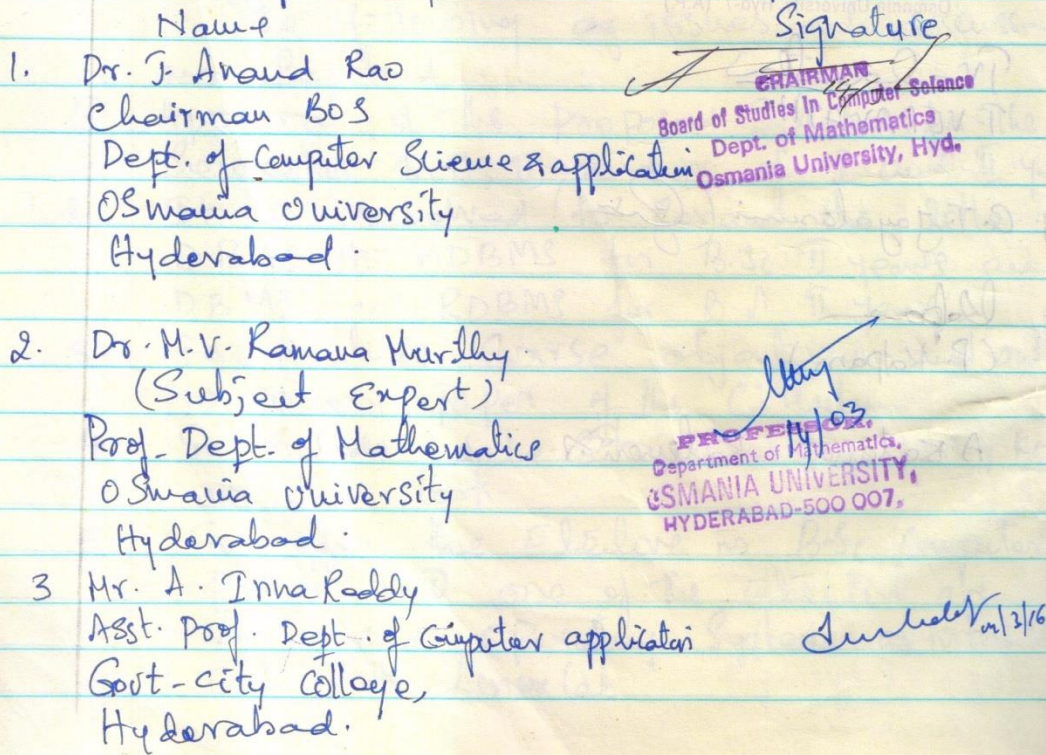 Name Signature
1. Dr. J. Anand Rao
Chairman BOS
Dept. of Computer Science & application
Osmania University
Hyderabad.
CHAIRMAN
Board of Studies In Computer Science
Dept. of Mathematics
Osmania University, Hyd.
2. Dr. M.V. Ramana Murthy.
(Subject Expert)
Prof. Dept. of Mathematics
Osmania University
Hyderabad.
14/03
PROFESSOR,
Department of Mathematics,
OSMANIA UNIVERSITY,
HYDERABAD-500 007,
3 Mr. A. Inna Reddy
Asst. Prof. Dept. of Computer application
Govt-city College,
Hyderabad.